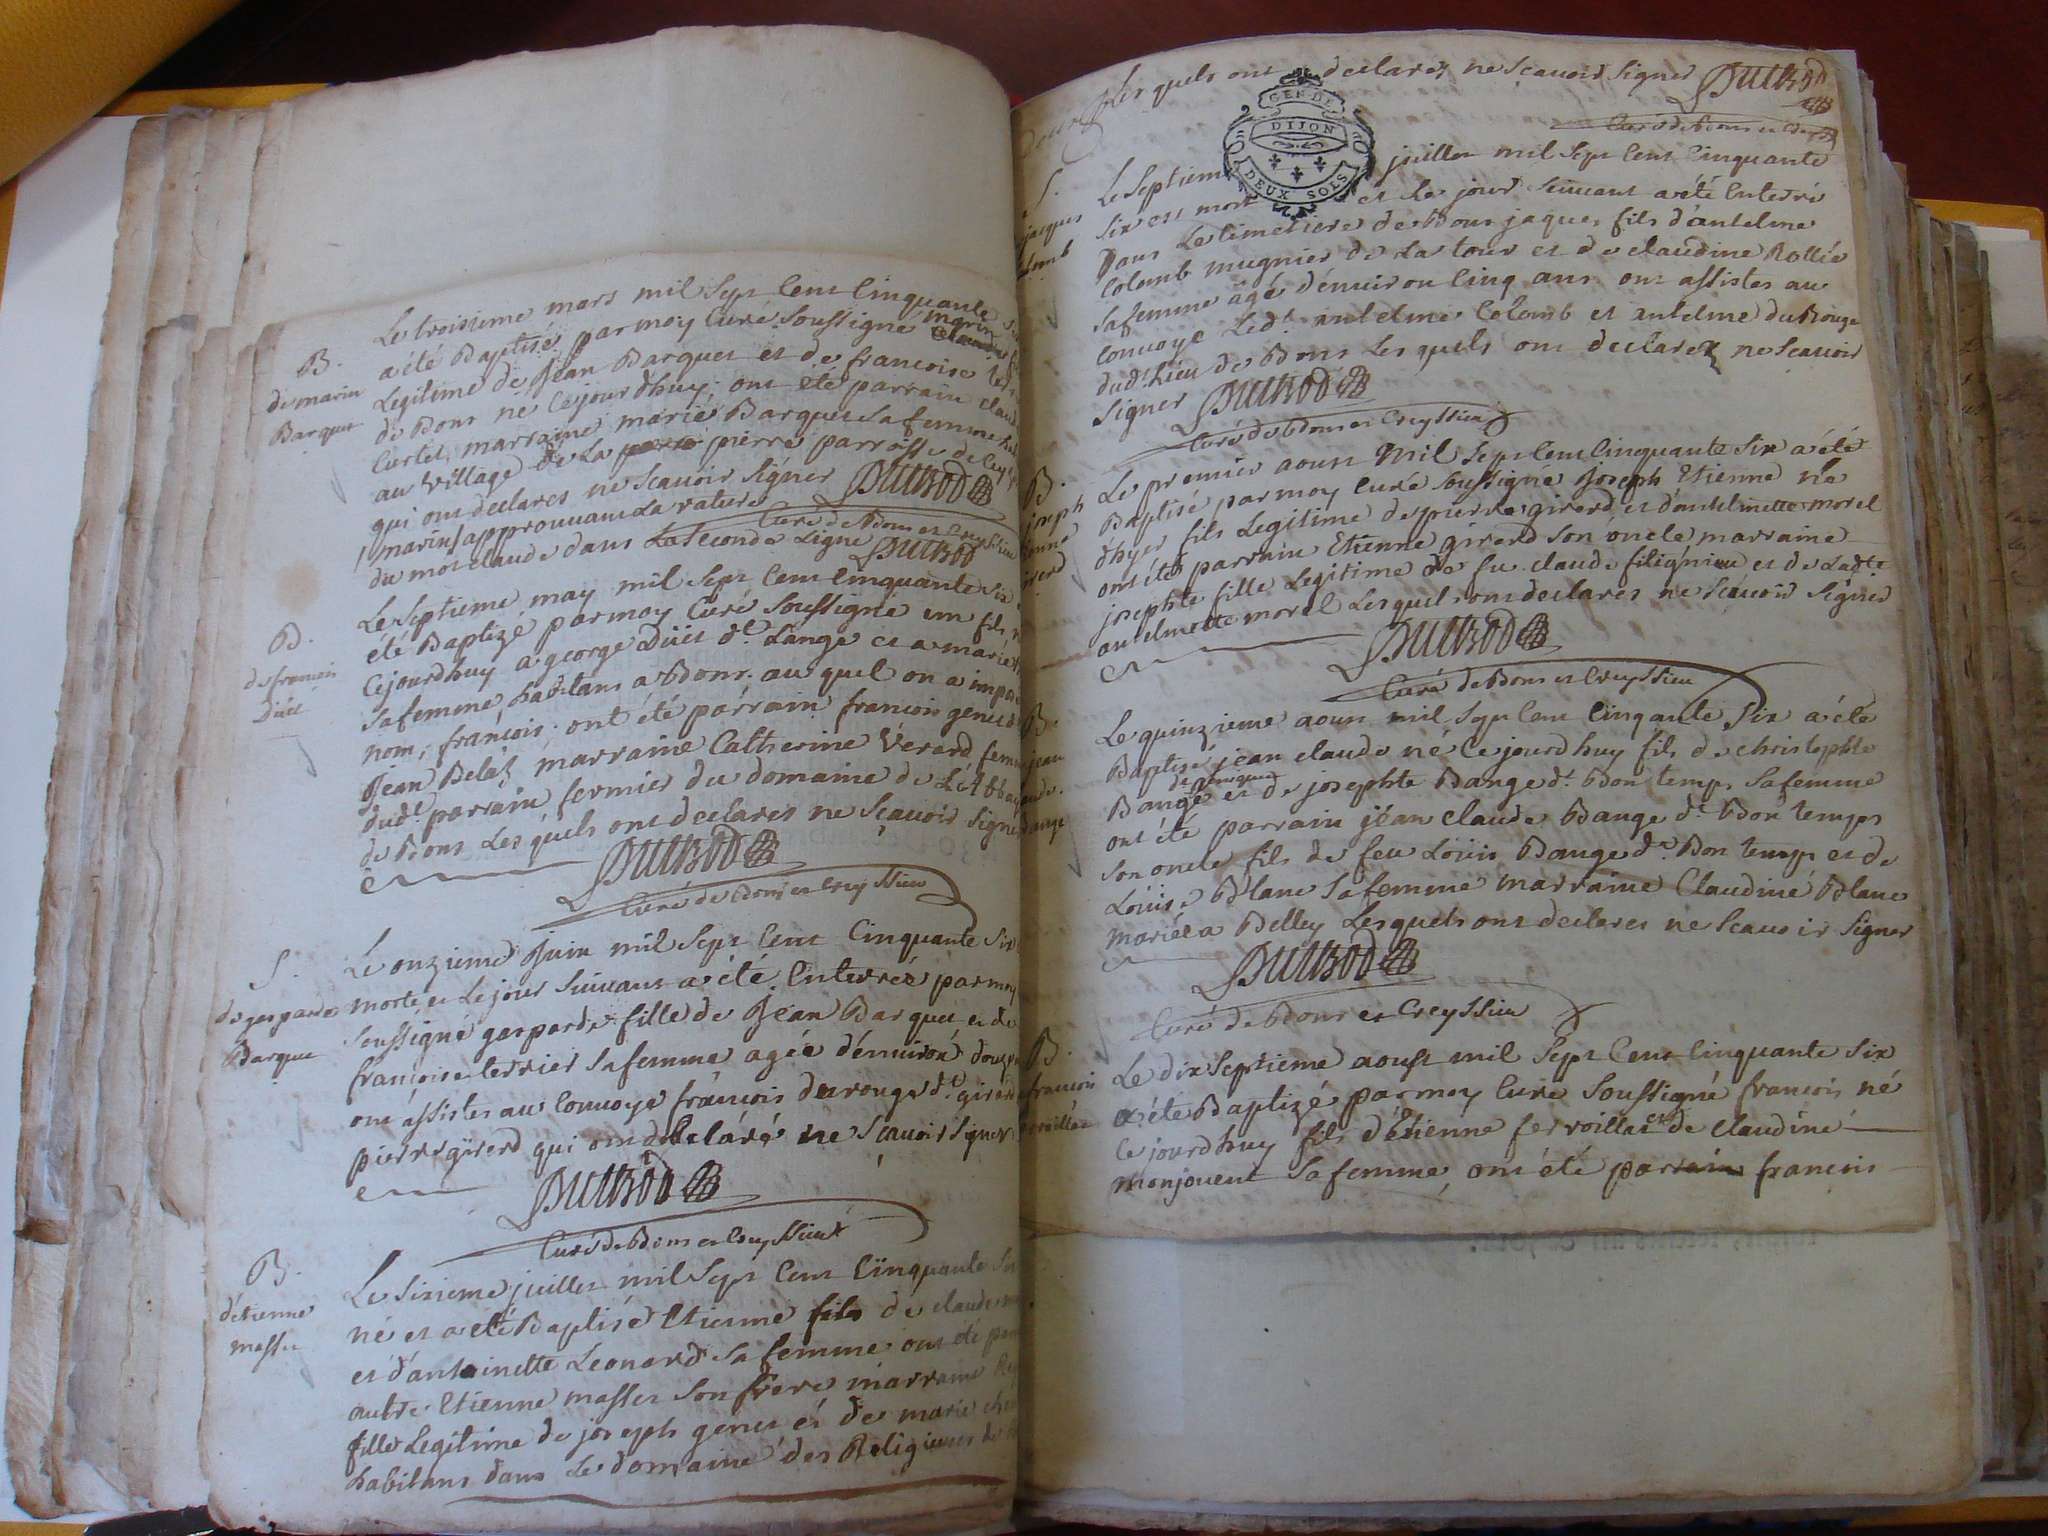 B.
de marin
Barquet
Le troisieme mars mil Sept Cent Cinquante
a été Baptisé par moy Curé Soussigné marin
Legitime de Jean Barquet et de francoise
de Bons né Cejourdhuy; ont été parrain
Curtet, marraine marie Barquet Sa femme
au village de La pierre parroisse de
qui ont declarés ne Scavoir Signer Dutrod
marin approuvant La rature Curé de Bons et Creyssieu
du mot claude dans La Seconde Ligne Dutrod
B.
de francois
Le Septieme may mil Sept Cent Cinquante Six
été Baptizé par moy Curé Soussigné un fils
Cejourdhuy a george dt. Lange et a marie
Sa femme habitans a Bons. au quel on a
nom, francois. ont été parrain francois
Jean Belat, marraine Catherine Verard
dudt. parrain fermier du domaine de
de Bons Lesquels ont declarés ne Scavoir Signer
Dutrod
Curé de Bons et Creyssieu
S.
de gasparde
Barquet
Le onzieme Juin mil Sept Cent Cinquante Six
morte et Le jour Suivant a été Enterrée par moy
Soussigné gasparde fille de Jean Barquet et de
francoise terrier Sa femme agée d'environ
ont assistés au Convoye francois durouge dt. girerd
pierre girerd qui ont declaré ne Scavoir Signer
Dutrod
Curé de Bons et Creyssieu
B.
d'étienne
masset
Le Sixieme juillet mil Sept Cent Cinquante
né et a été Baptisé Etienne fils de claude
et d'antoinette Leonard Sa femme ont été
autre Etienne masset Son frere marraine
fille Legitime de joseph genet et de marie
habitans dans Le domaine des Religieuses de
Lesquels ont declarez ne Scavoir Signer Dutrod
Curé de Bons et
GEN. DE
DIJON
DEUX SOLS
S.
jacques
Le Septieme juillet mil Sept Cent Cinquante
Six est mort et Le jour Suivant a été Enterré
Dans Le Cimetiere de Bons jaques fils d'antelme
Colomb mugnier de La tour et de claudine Rollié
Sa femme âgé d'environ Cinq ans ont assistés au
Convoye Ledt. antelme Colomb et antelme du Rouge
dudt. Lieu de Bons Lesquels ont declarez ne Scavoir
Signer Dutrod
Curé de Bons et Creyssieu
B.
joseph
Le premier aoust Mil Sept Cent Cinquante Six a été
Baptisé par moy Curé Soussigné Joseph Etienne né
d'hyer fils Legitime de pierre girerd et d'anthelmette morel
ont été parrain Etienne girerd Son oncle marraine
josephte fille Legitime de fu claude et de Ladte
antelmette morel Lesquels ont declarés ne Scavoir Signer
Dutrod
Curé de Bons et Creyssieu
B.
jean
Le quinzieme aoust mil Sept Cent Cinqante Six a été
Baptisé jean claude né Cejourdhuy fils de christophle
Bange et de josephte Bange dt. Bon temps Sa femme
ont été parrain jéan claude Bange dt. Bon temps
Son oncle fils de feu Loüis Bange dt. Bon temps et de
Loüise Blanc Sa femme marraine Claudine Blanc
mariée a Belley Lesquels ont declarés ne Scavoir Signer
Dutrod
Curé de Bons et Creyssieu
B.
francois
Le dix Septieme aoust mil Sept Cent Cinquante Six
a été Baptizé par moy Cure Soussigné francois né
Cejourdhuy fils d'étienne et de claudine
monjouent Sa femme, ont été parrain francois